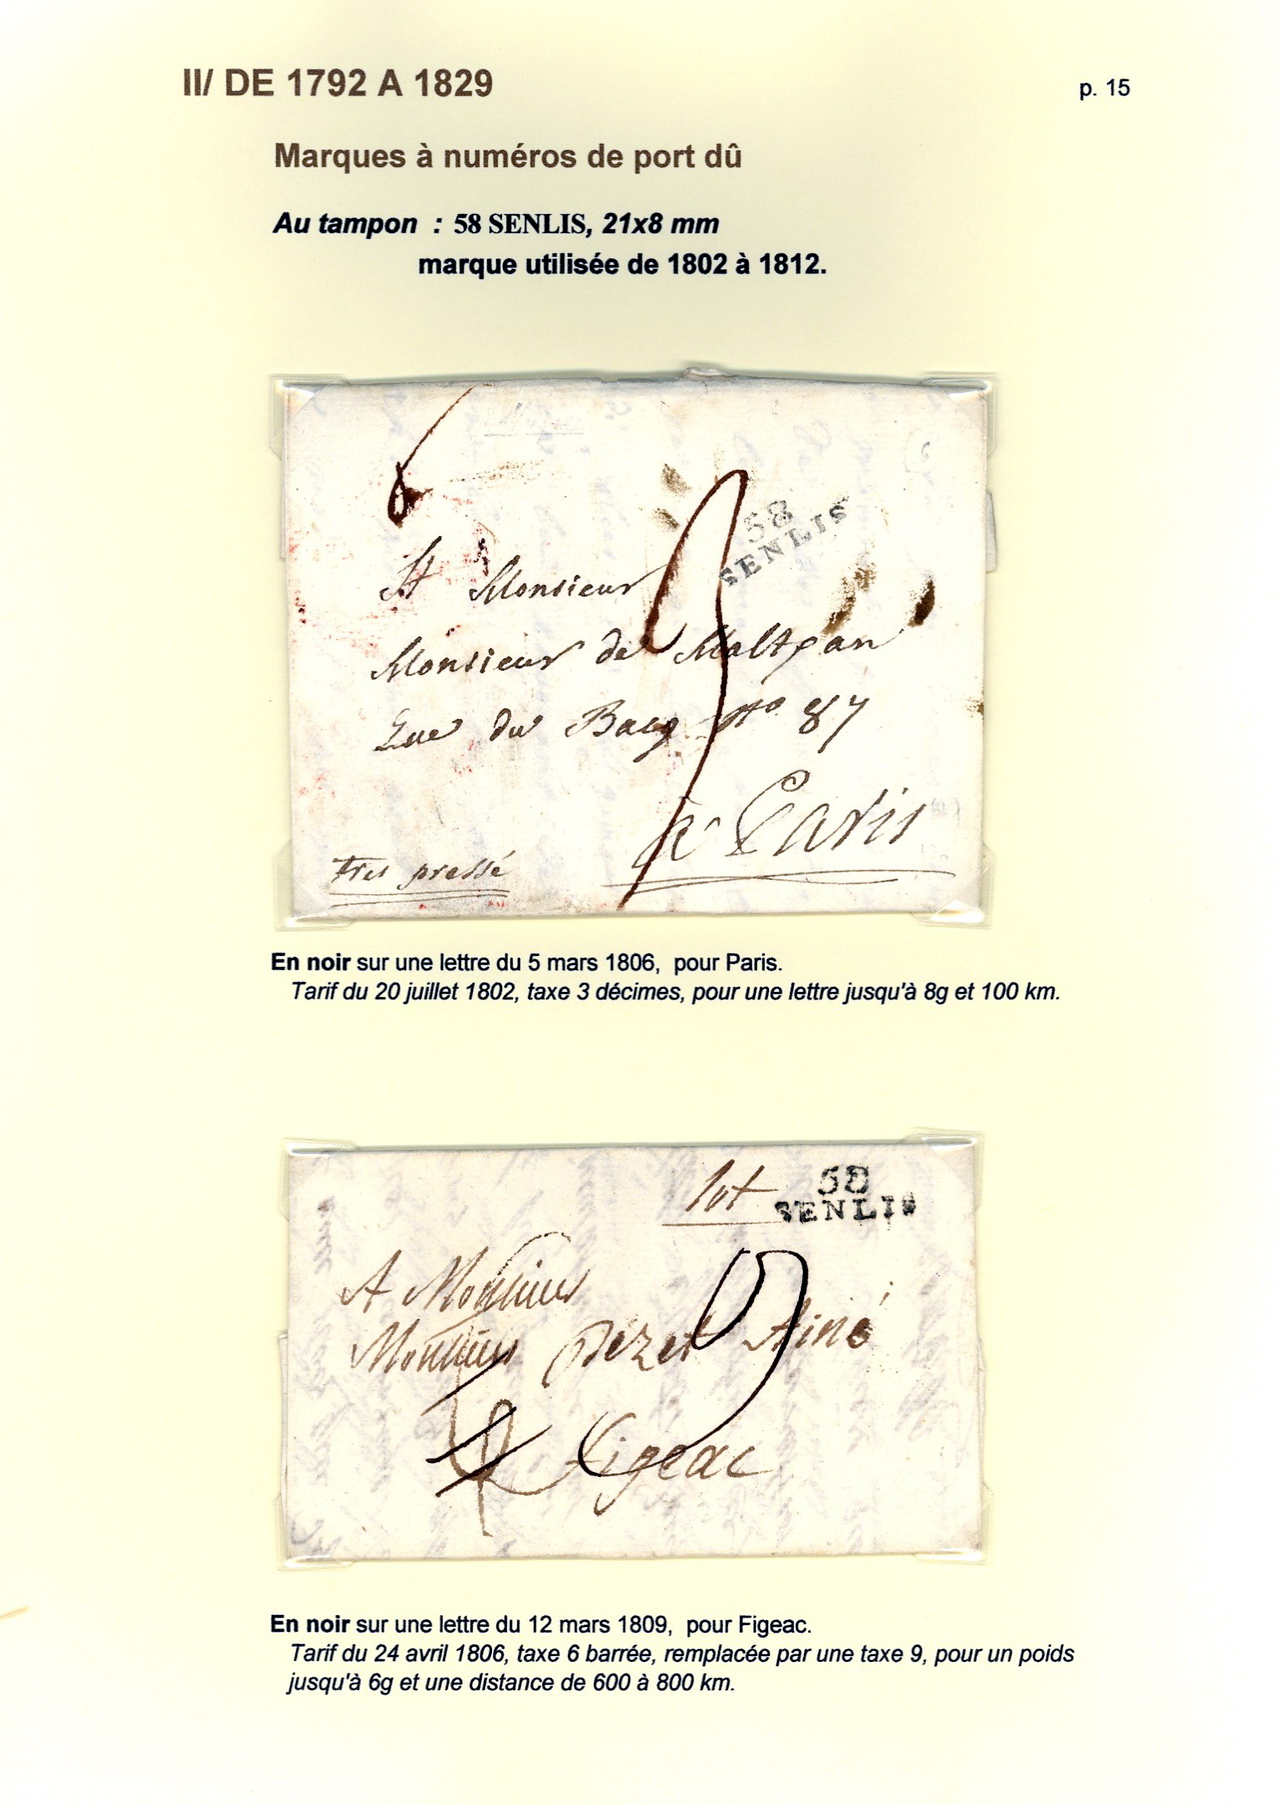 II/ DE 1792 A 1829
p. 15
Marques à numéros de port dû
Au tampon : 58 SENLIS, 21x8 mm
marque utilisée de 1802 à 1812.
58
SENLIS
A Monsieur
Monsieur de
Rue du Bacq No 87
à Paris
tres pressé
En noir sur une lettre du 5 mars 1806, pour Paris.
Tarif du 20 juillet 1802, taxe 3 décimes, pour une lettre jusqu'à 8g et 100 km.
Lot
58
SENLIS
A Monsieur
Monsieur Dézet Ainé
Figeac
En noir sur une lettre du 12 mars 1809, pour Figeac.
Tarif du 24 avril 1806, taxe 6 barrée, remplacée par une taxe 9, pour un poids
jusqu'à 6g et une distance de 600 à 800 km.